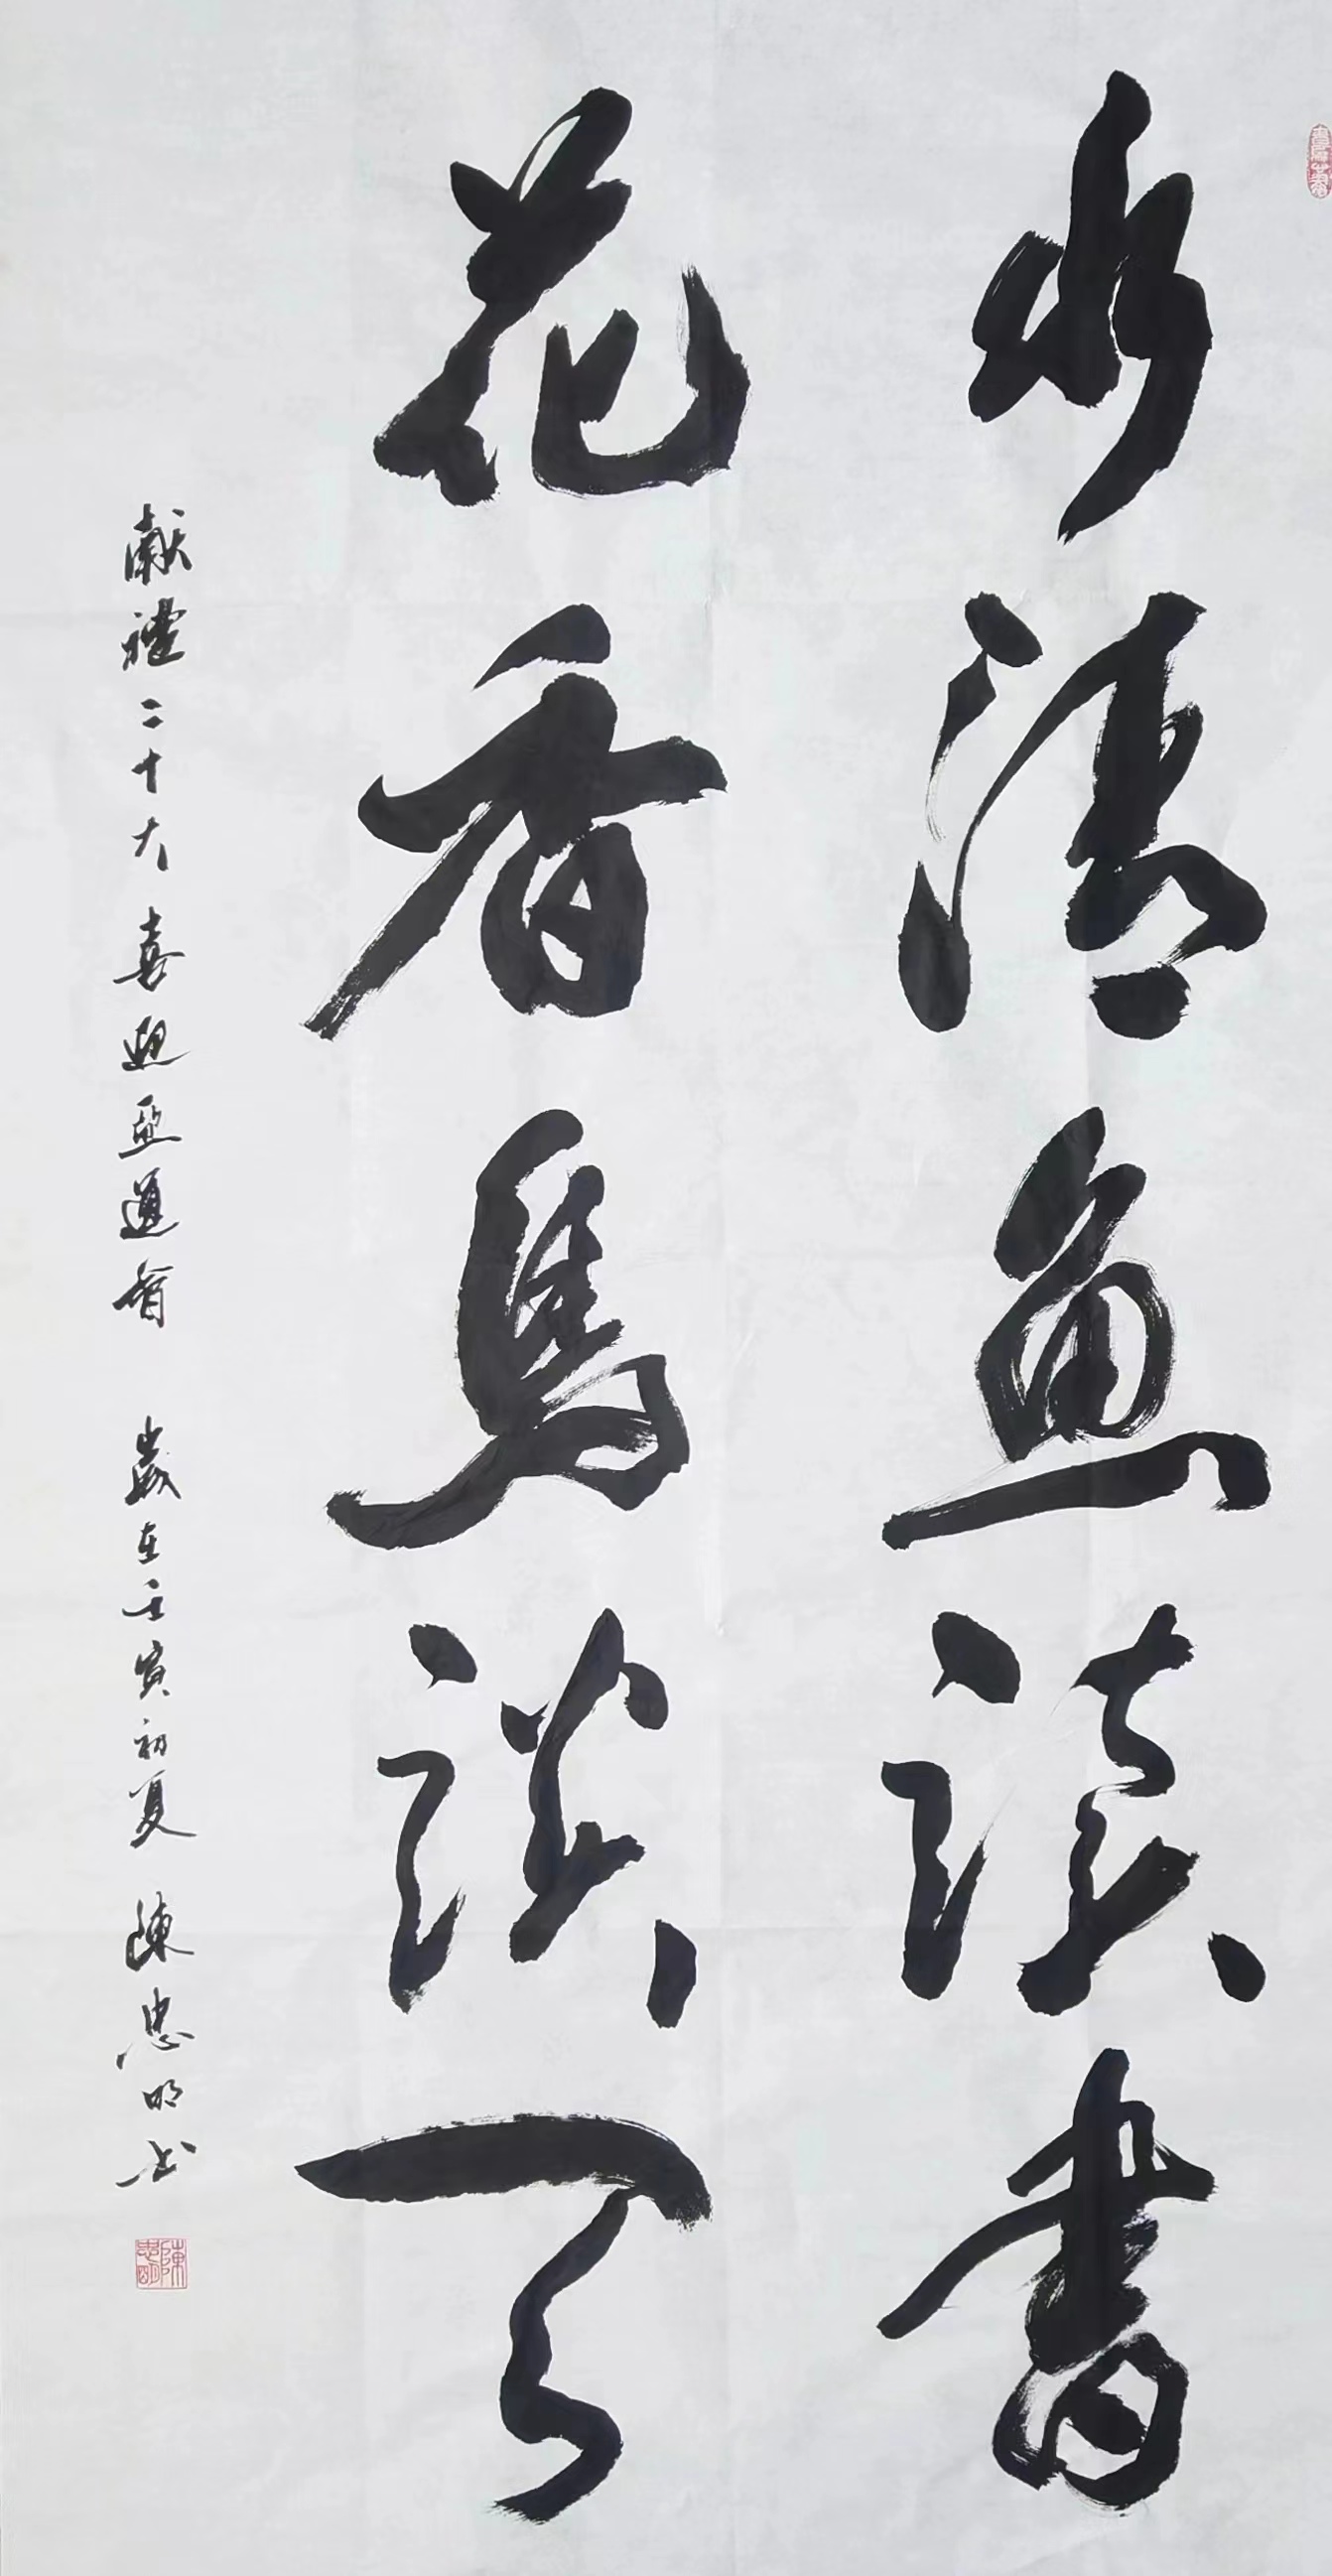 水清魚讀書
花香鳥談天
獻禮二十大喜迎亞運會 歲在壬寅初夏 陳忠明书
陳忠明